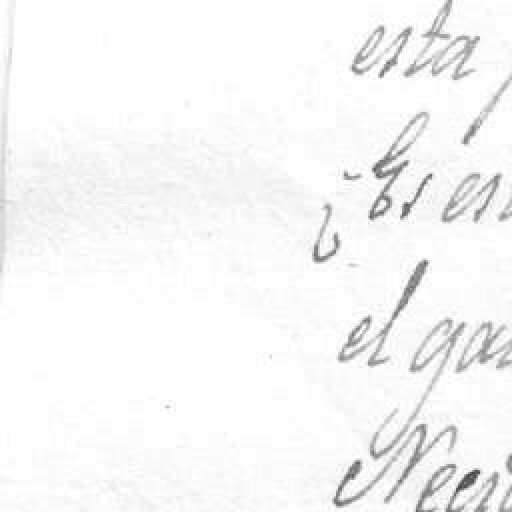 esta
¿Es es
el ga
Neci